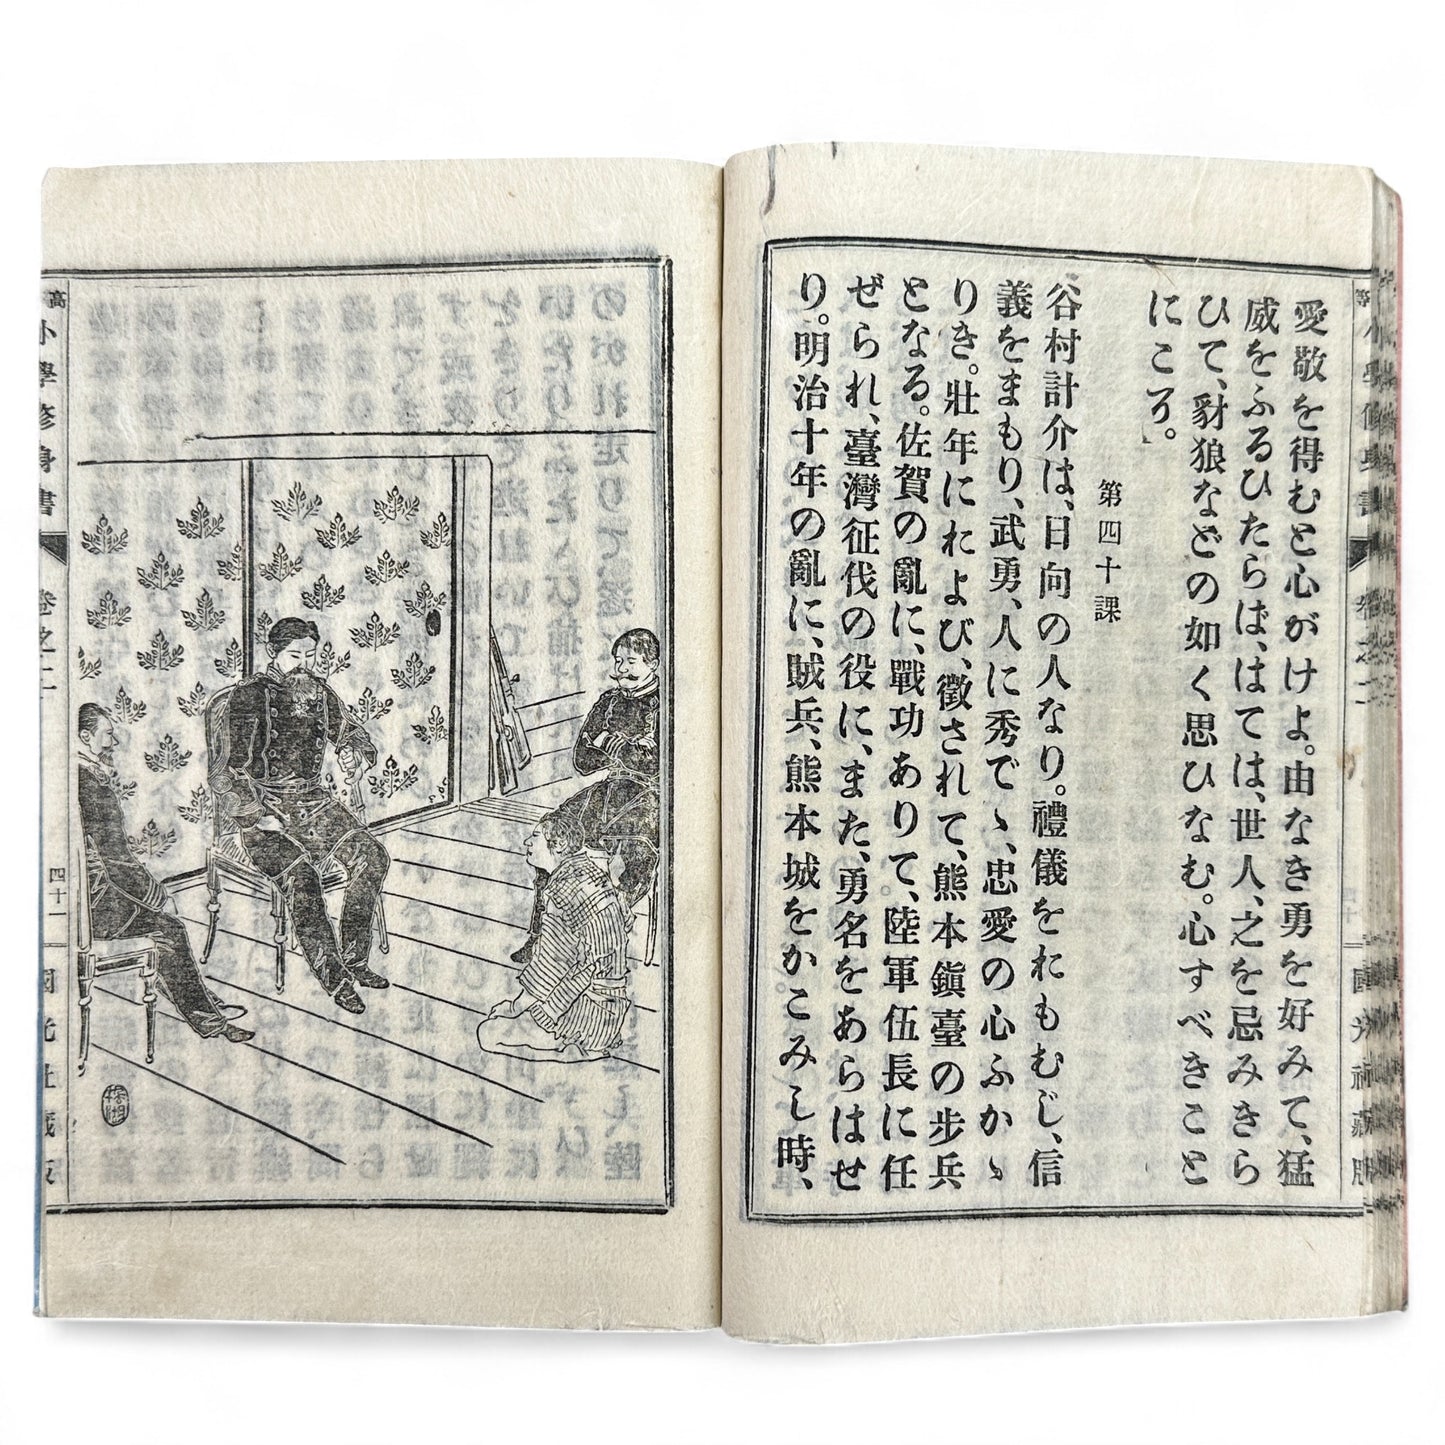 愛敬を得むと心がけよ。由なき勇を好みて、猛
威をふるひたらば、はては、世人、之を忌みきら
ひて、豺狼などの如く思ひなむ。心すべきこと
にころ。」
第四十課
谷村計介は、日向の人なり。禮儀をおもむじ、信
義をまもり、武勇、人に秀でゝ、忠愛の心ふかゝ
りき。壯年におよび、徵されて、熊本鎭臺の步兵
となる。佐賀の亂に、戰功ありて、陸軍伍長に任
ぜられ、臺灣征伐の役に、また、勇名をあらはせ
り。明治十年の亂に、賊兵、熊本城をかこみし時、
高
小學修身書
卷之二
四十一
國光社藏版